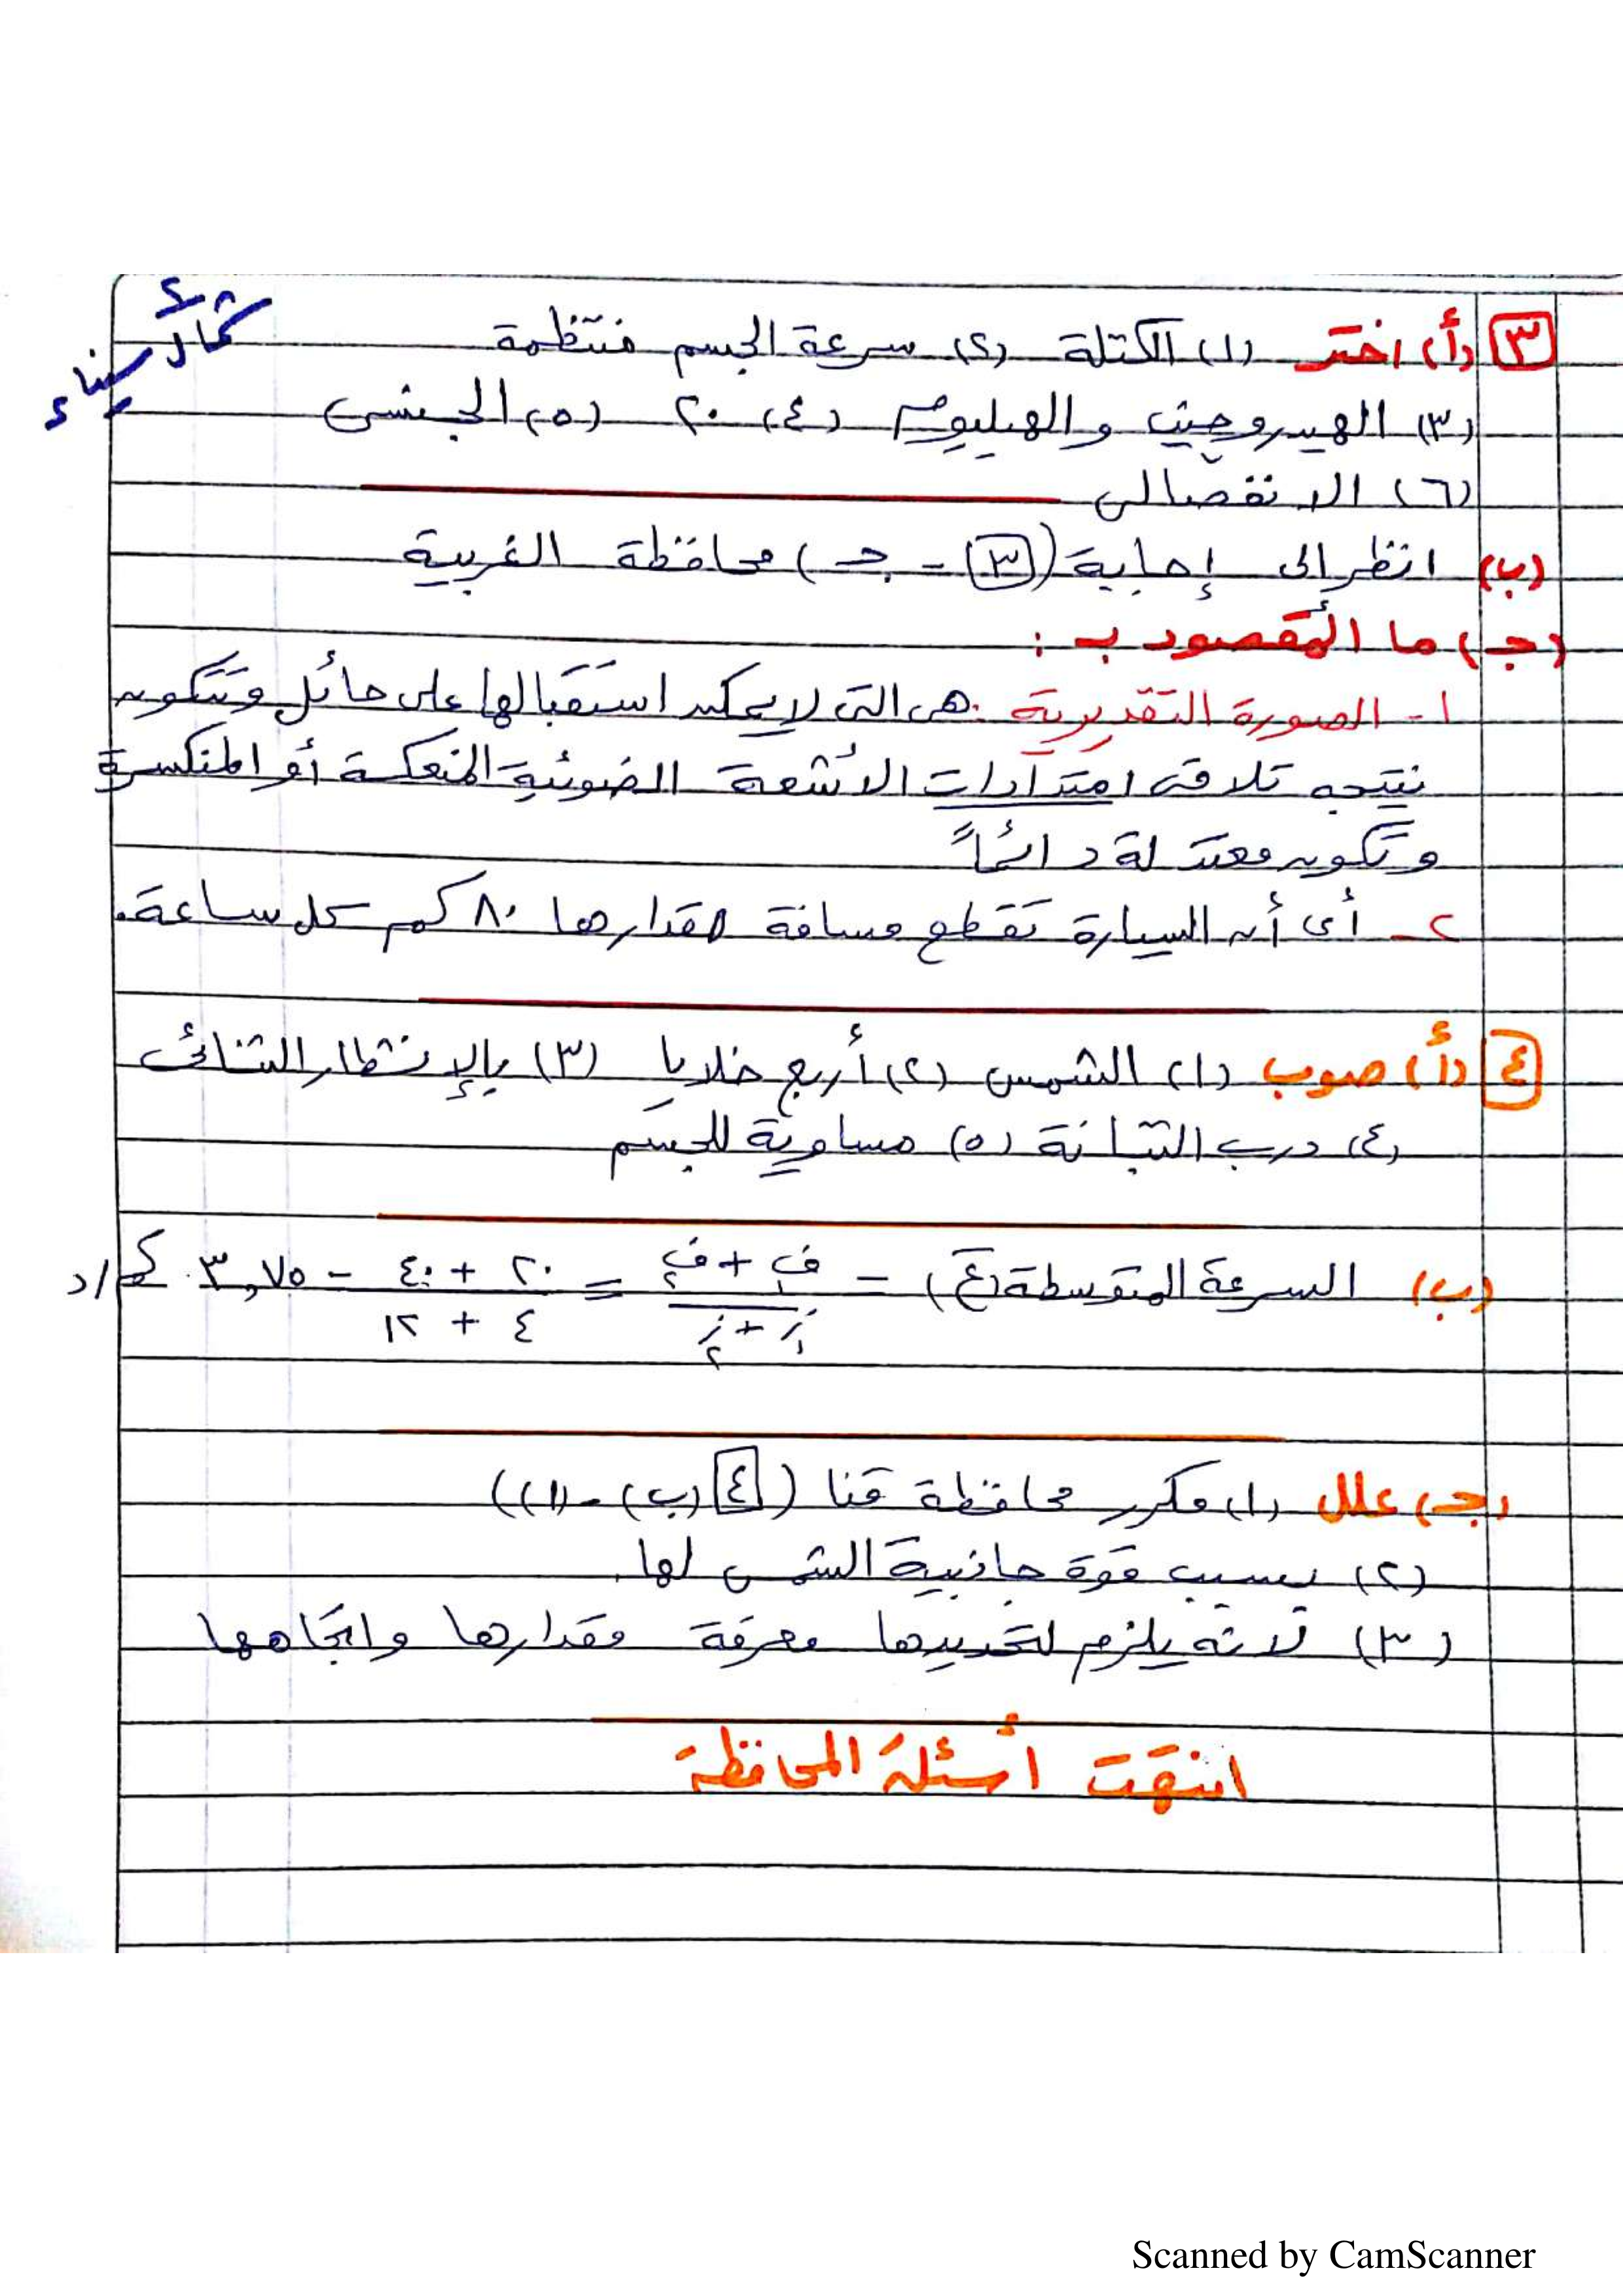 شمال سيناء
٣ (أ) اختر (١) الكتلة (٢) سرعة الجسم منتظمة
(٣) الهيدروجين والهيليوم (٤) ٢٠ (٥) الجنسى
(٦) الانقصالى
(ب) انظر إلى إجابة (٣ - جـ) محافظة الغربية
(جـ) ما المقصود بـ :
١- الصورة التقديرية : هى التى لا يمكن استقبالها على حائل وتتكون
نتيجه تلاقى امتدادات الأشعة الضوئية المنعكسة أو المنكسرة
وتكون معتدلة دائماً
٢- أى أن السيارة تقطع مسافة مقدارها ٨٠ كم كل ساعة.
٤ (أ) صوب (١) الشمس (٢) أربع خلايا (٣) بالإنشطار الثنائى
(٤) درب التبانة (٥) مساوية للجسم
(ب) السرعة المتوسطة (ع) = ف١ + ف٢ / ز١ + ز٢ = ٢٠ + ٤٠ / ٤ + ١٢ = ٣,٧٥ كم/د
(جـ) علل (١) مكرر محافظة قنا (٤ (ب) - (١))
(٢) بسبب قوة جاذبية الشمس لها.
(٣) لأنه يلزم لتحديدها معرفة مقدارها واتجاهها
انتهت أسئلة المحافظة
Scanned by CamScanner